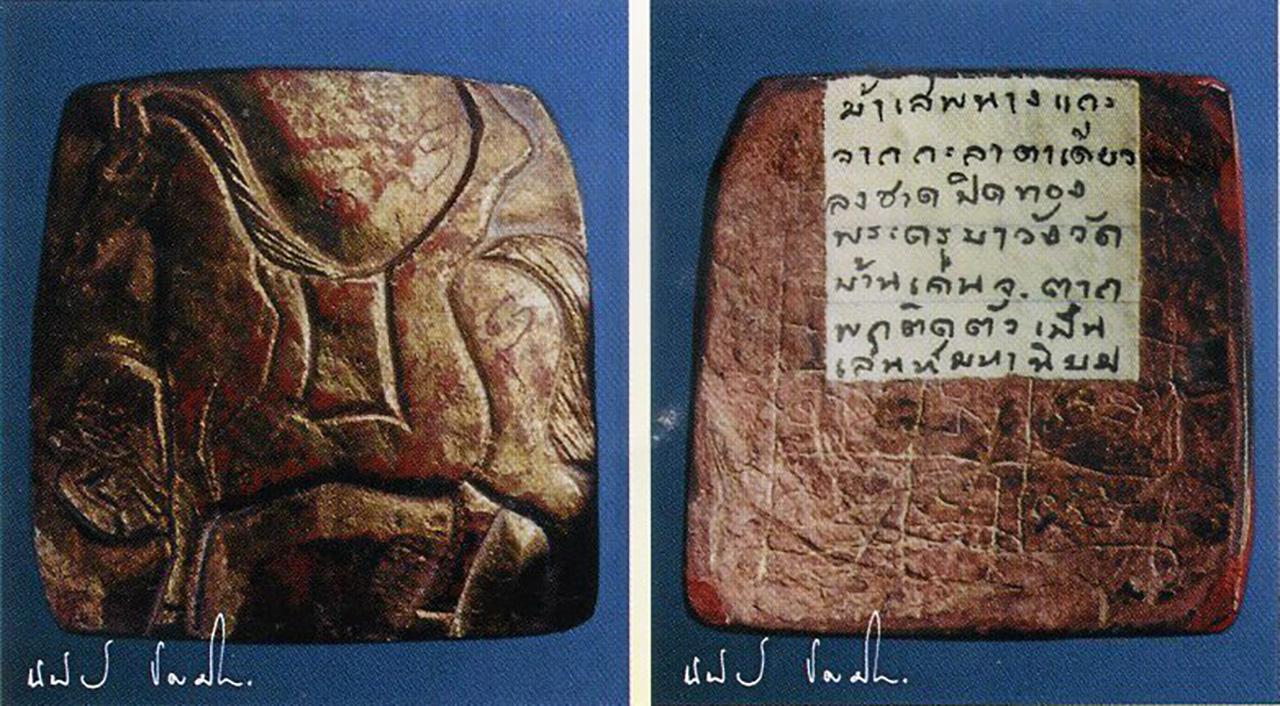 ม้าเสพนางแกะ
จากกะลาตาเดียว
ลงชาดปิดทอง
พระครูบาวังวัด
บ้านเด่น จ.ตาก
พกติดตัวเป็น
เสน่ห์มหานิยม